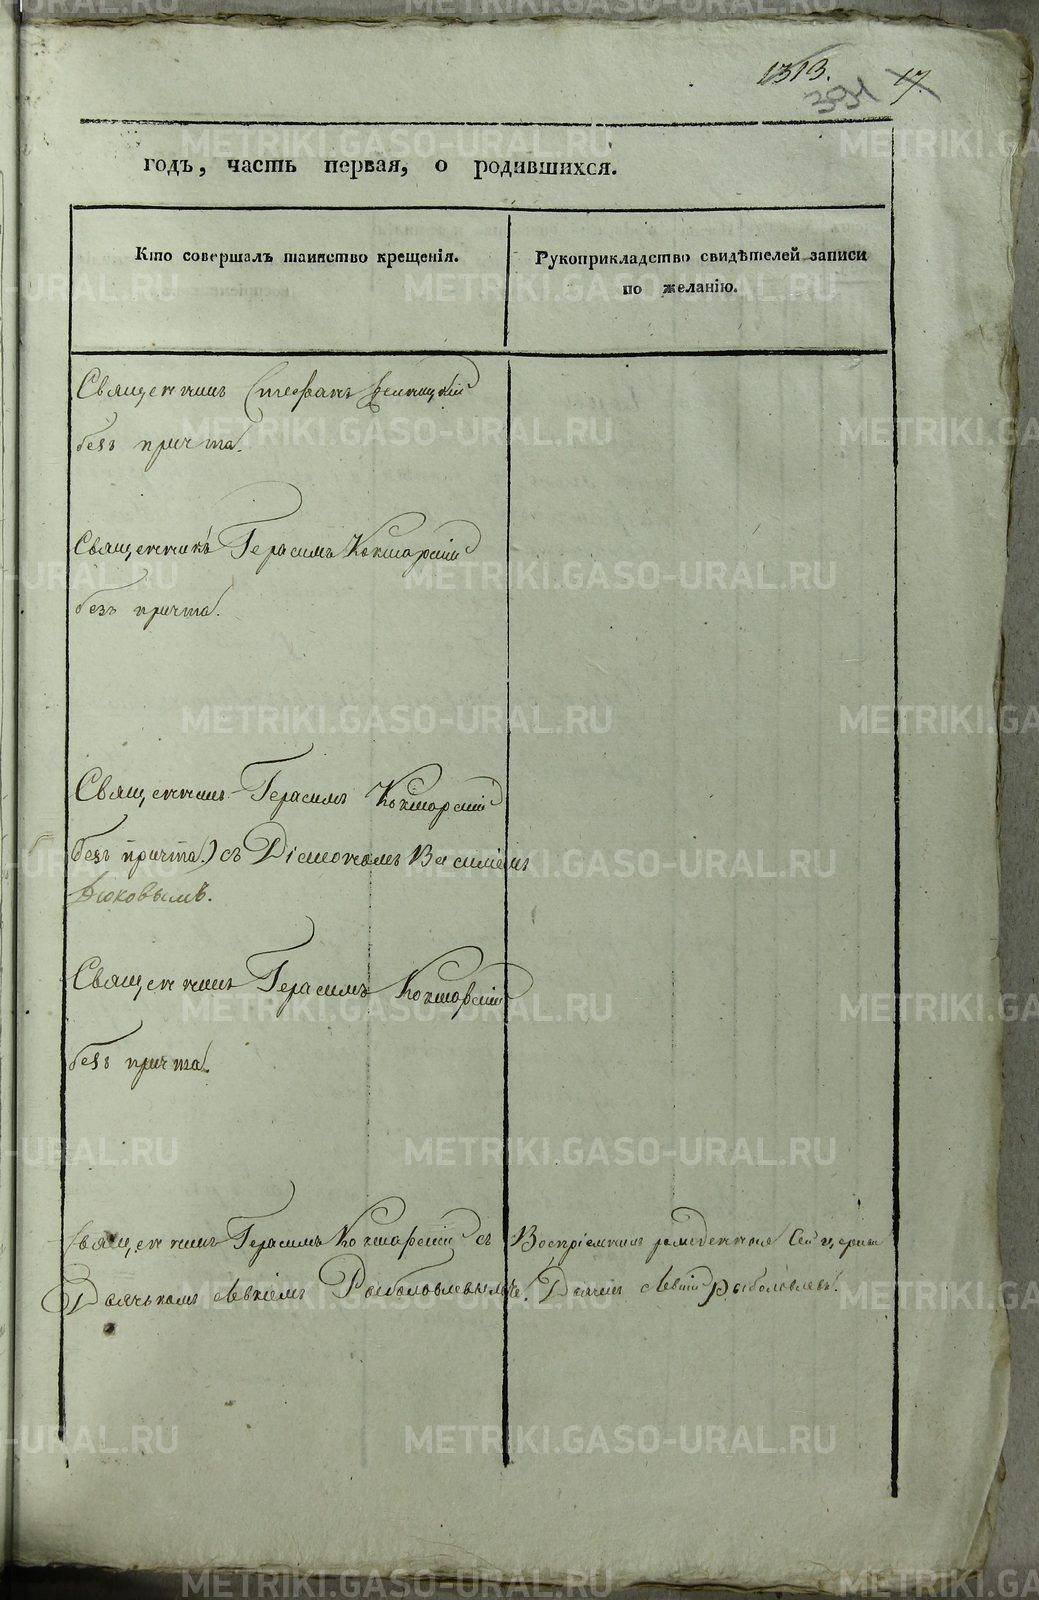 1313.
17.
годъ, часть первая, о родившихся.
Кто совершалъ таинство крещенія.
Рукоприкладство свидѣтелей записи
по желанію.
Священникъ Стефанъ
безъ причта.
Священникъ Герасимъ Кокшарскій
безъ причта.
Священникъ Герасимъ Кокшарскій
безъ причта) съ Діакономъ Василіемъ
Священникъ Герасимъ Кокшарскій
безъ причта.
Священникъ Герасимъ Кокшарскій съ
Дьячькомъ Левкіемъ Рыболовлевымъ
Воспріемникъ сей церкви
Дьячекъ Левкій Рыболовлевъ.
METRIKI.GASO-URAL.RU